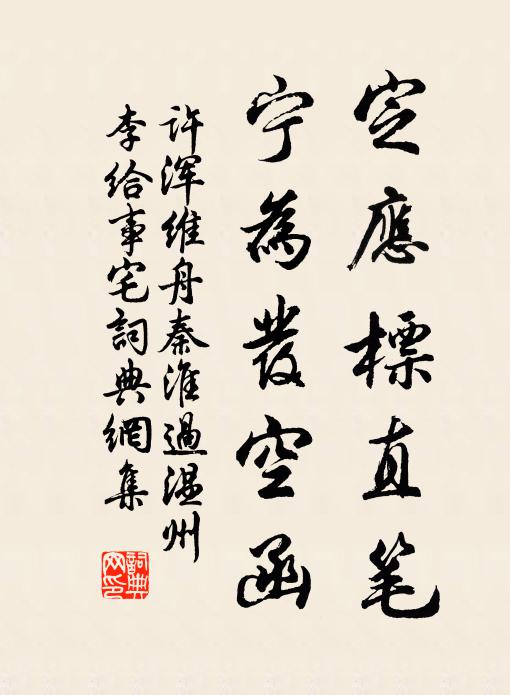 定應標直笔
宁為發空函
许浑維舟秦淮過温州
李给事宅詞典網集
詞典
网印